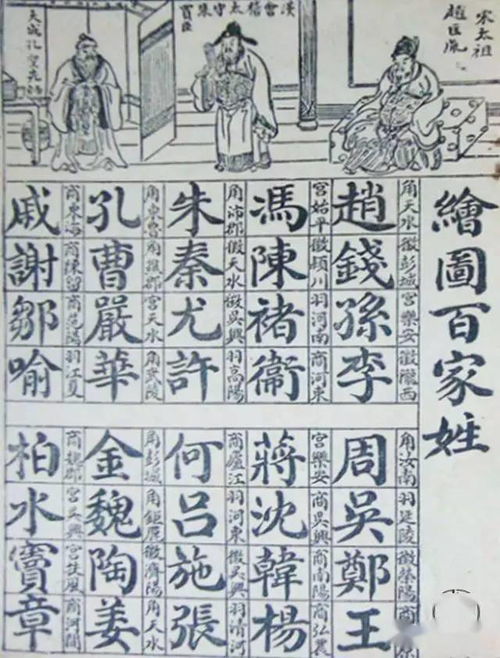 宋太祖
趙匡胤
漢會稽太守朱
買臣
大成孔聖先師
繪圖百家姓
角天水 徵彭城 宮樂安 徵隴西
趙錢孫李
宮始平 徵潁川 羽河南 商河東
馮陳褚衛
角沛郡 徵天水 徵吳興 羽高陽
朱秦尤許
角東魯 角譙郡 宮天水 角武陵
孔曹嚴華
商東海 商陳留 商范陽 羽江夏
戚謝鄒喻
角汝南 羽延陵 徵滎陽 商
周吳鄭王
宮樂安 商吳興 商南陽 商弘農
蔣沈韓楊
商廬江 羽河東 徵吳興 羽清河
何呂施張
角彭城 角鉅鹿 徵濟陽 角天水
金魏陶姜
商魏郡 宮吳興 宮扶風 商河間
柏水竇章